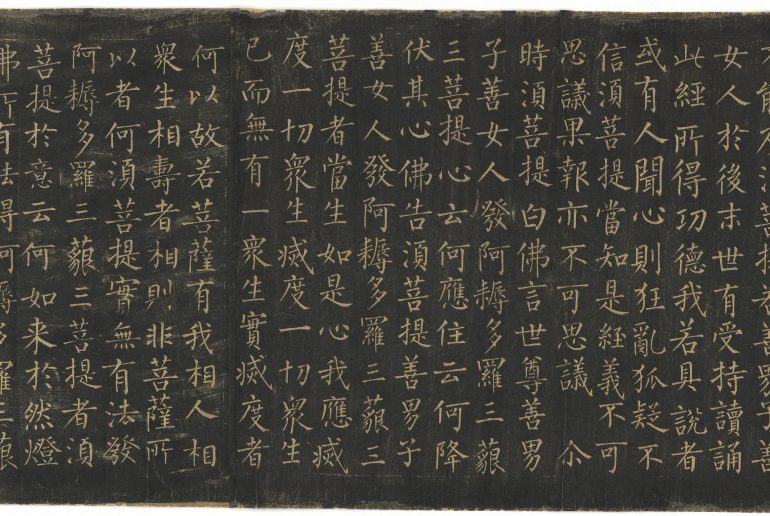 能及湏菩提若善男子善
女人於後末世有受持讀誦
此經所得功德我若具説者
或有人聞心則狂亂狐疑不
信湏菩提當知是經義不可
思議果報亦不可思議 尒
時湏菩提白佛言世尊善男
子善女人發阿耨多羅三藐
三菩提心云何應住云何降
伏其心佛告湏菩提善男子
善女人發阿耨多羅三藐三
菩提者當生如是心我應滅
度一切衆生滅度一切衆生
已而無有一衆生實滅度者
何以故若菩薩有我相人相
衆生相壽者相則非菩薩所
以者何湏菩提實無有法發
阿耨多羅三藐三菩提者湏
菩提於意云何如来於然燈
佛所有法得阿耨多羅三藐